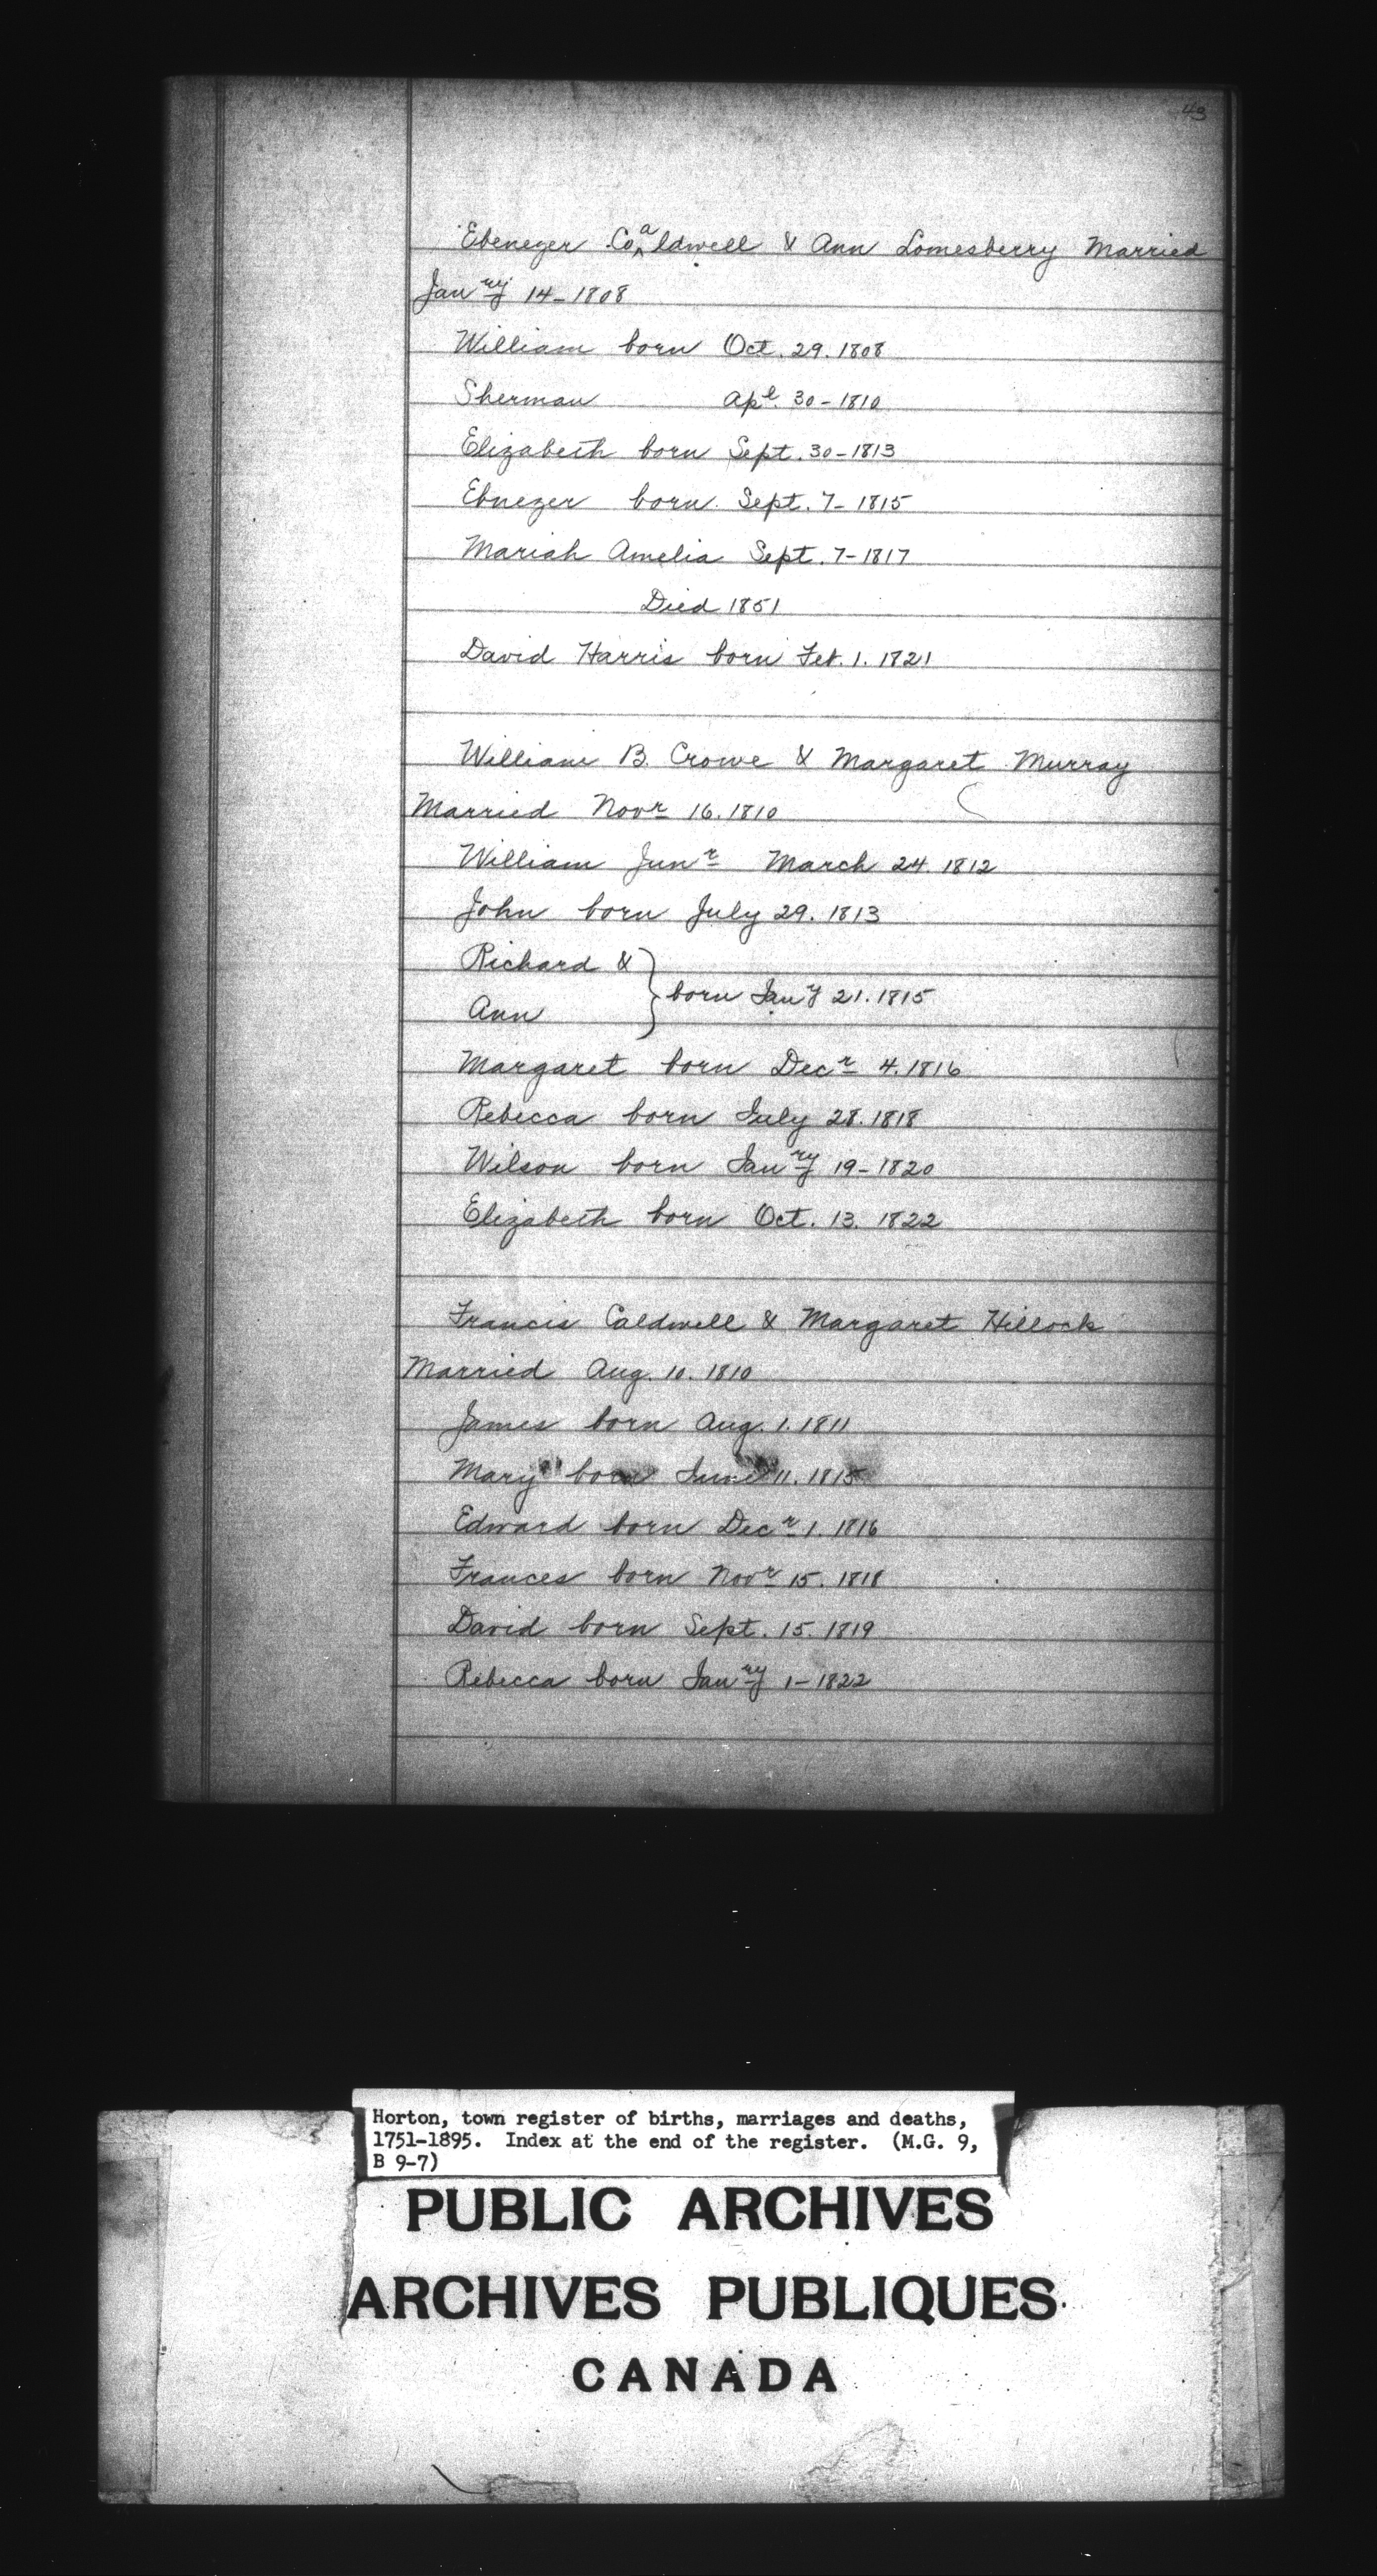 43
Ebenezer Coaldwell & Ann Lomesberry Married
Janry 14-1808
William born Oct. 29. 1808
Sherman Apl. 30-1810
Elizabeth born Sept. 30-1813
Ebnezer born. Sept. 7-1815
Mariah Amelia Sept. 7-1817
Died 1851
David Harris born Feb. 1. 1821
William B. Crowe & Margaret Murray
Married Novr 16. 1810
William Junr March 24. 1812
John born July 29. 1813
Richard &
Ann } born Jany 21. 1815
Margaret born Decr 4. 1816
Rebecca born July 28. 1818
Wilson born Janry 19-1820
Elizabeth born Oct. 13. 1822
Francis Caldwell & Margaret Hillock
Married Aug. 10. 1810
James born Aug. 1. 1811
Mary born June 11. 1815
Edward born Decr 1. 1816
Frances born Novr 15. 1818
David born Sept. 15. 1819
Rebecca born Janry 1-1822
Horton, town register of births, marriages and deaths,
1751-1895. Index at the end of the register. (M.G. 9,
B 9-7)
PUBLIC ARCHIVES
ARCHIVES PUBLIQUES
CANADA